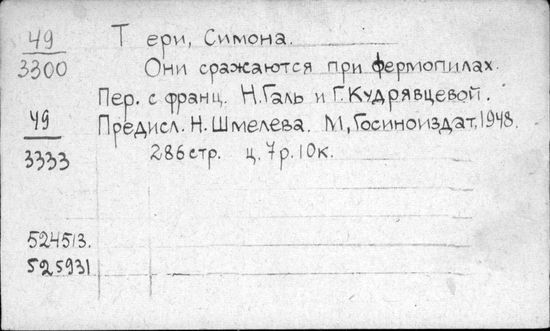 49
3300
49
3333
524513.
525931
Т ери, Симона.
Они сражаются при фермопилах.
Пер. с франц. Н.Галь и Г.Кудрявцевой.
Предисл. Н.Шмелева. М., Госиноиздат, 1948.
286 стр. ц. 7 р. 10 к.